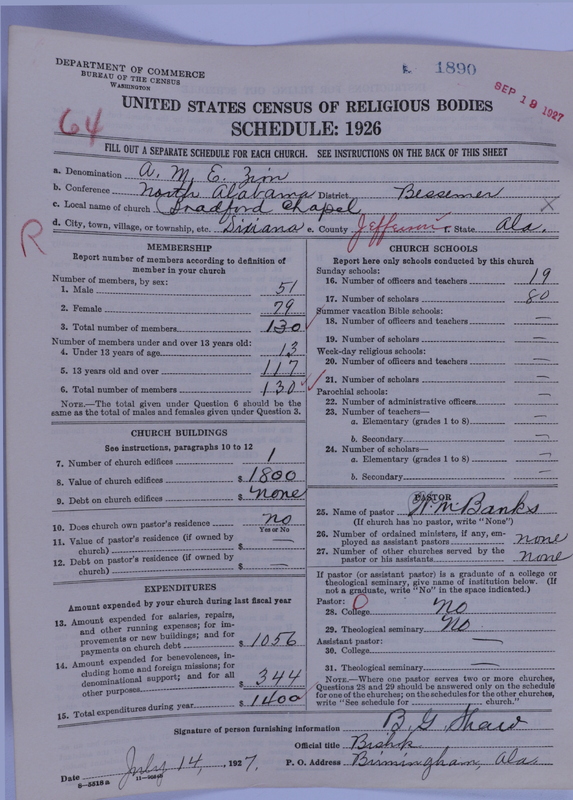 DEPARTMENT OF COMMERCE
BUREAU OF THE CENSUS
WASHINGTON
1890
SEP 19 1927
UNITED STATES CENSUS OF RELIGIOUS BODIES
64
SCHEDULE: 1926
FILL OUT A SEPARATE SCHEDULE FOR EACH CHURCH. SEE INSTRUCTIONS ON THE BACK OF THIS SHEET
a. Denomination A. M. E. Zion
b. Conference North Alabama District Bessemer
c. Local name of church Bradford Chapel X
d. City, town, village, or township, etc. Dixiana e. County Jefferson f. State Ala.
R
MEMBERSHIP
Report number of members according to definition of
member in your church
Number of members, by sex:
1. Male 51
2. Female 79
3. Total number of members 130
Number of members under and over 13 years old:
4. Under 13 years of age 13
5. 13 years old and over 117
6. Total number of members 130
NOTE.—The total given under Question 6 should be
same as the total of males and females given under Question 3.
CHURCH BUILDINGS
See instructions, paragraphs 10 to 12
7. Number of church edifices 1
8. Value of church edifices $ 1800
9. Debt on church edifices $ none
10. Does church own pastor's residence no
Yes or No
11. Value of pastor's residence (if owned by
church) $ —
12. Debt on pastor's residence (if owned by
church) $ —
EXPENDITURES
Amount expended by your church during last fiscal year
13. Amount expended for salaries, repairs,
and other running expenses; for im-
provements or new buildings; and for
payments on church debt $ 1056
14. Amount expended for benevolences, in-
cluding home and foreign missions; for
denominational support; and for all
other purposes $ 344
15. Total expenditures during year $ 1400
CHURCH SCHOOLS
Report here only schools conducted by this church
Sunday schools:
16. Number of officers and teachers 19
17. Number of scholars 80
Summer vacation Bible schools:
18. Number of officers and teachers —
19. Number of scholars —
Week-day religious schools:
20. Number of officers and teachers —
21. Number of scholars —
Parochial schools:
22. Number of administrative officers —
23. Number of teachers—
a. Elementary (grades 1 to 8) —
b. Secondary —
24. Number of scholars—
a. Elementary (grades 1 to 8) —
b. Secondary —
PASTOR
25. Name of pastor Banks
(If church has no pastor, write "None")
26. Number of ordained ministers, if any, em-
ployed as assistant pastors none
27. Number of other churches served by the
pastor or his assistants none
If pastor (or assistant pastor) is a graduate of a college or
theological seminary, give name of institution below. (If
not a graduate, write "No" in the space indicated.)
Pastor:
28. College No
29. Theological seminary No
Assistant pastor:
30. College —
31. Theological seminary —
NOTE.—Where one pastor serves two or more churches,
Questions 28 and 29 should be answered only on the schedule
for one of the churches; on the schedules for the other churches,
write "See schedule for church."
Signature of person furnishing information B. G. Shaw
Official title Bishop
Date July 14, 1927. P. O. Address Birmingham, Ala.
8—5518a